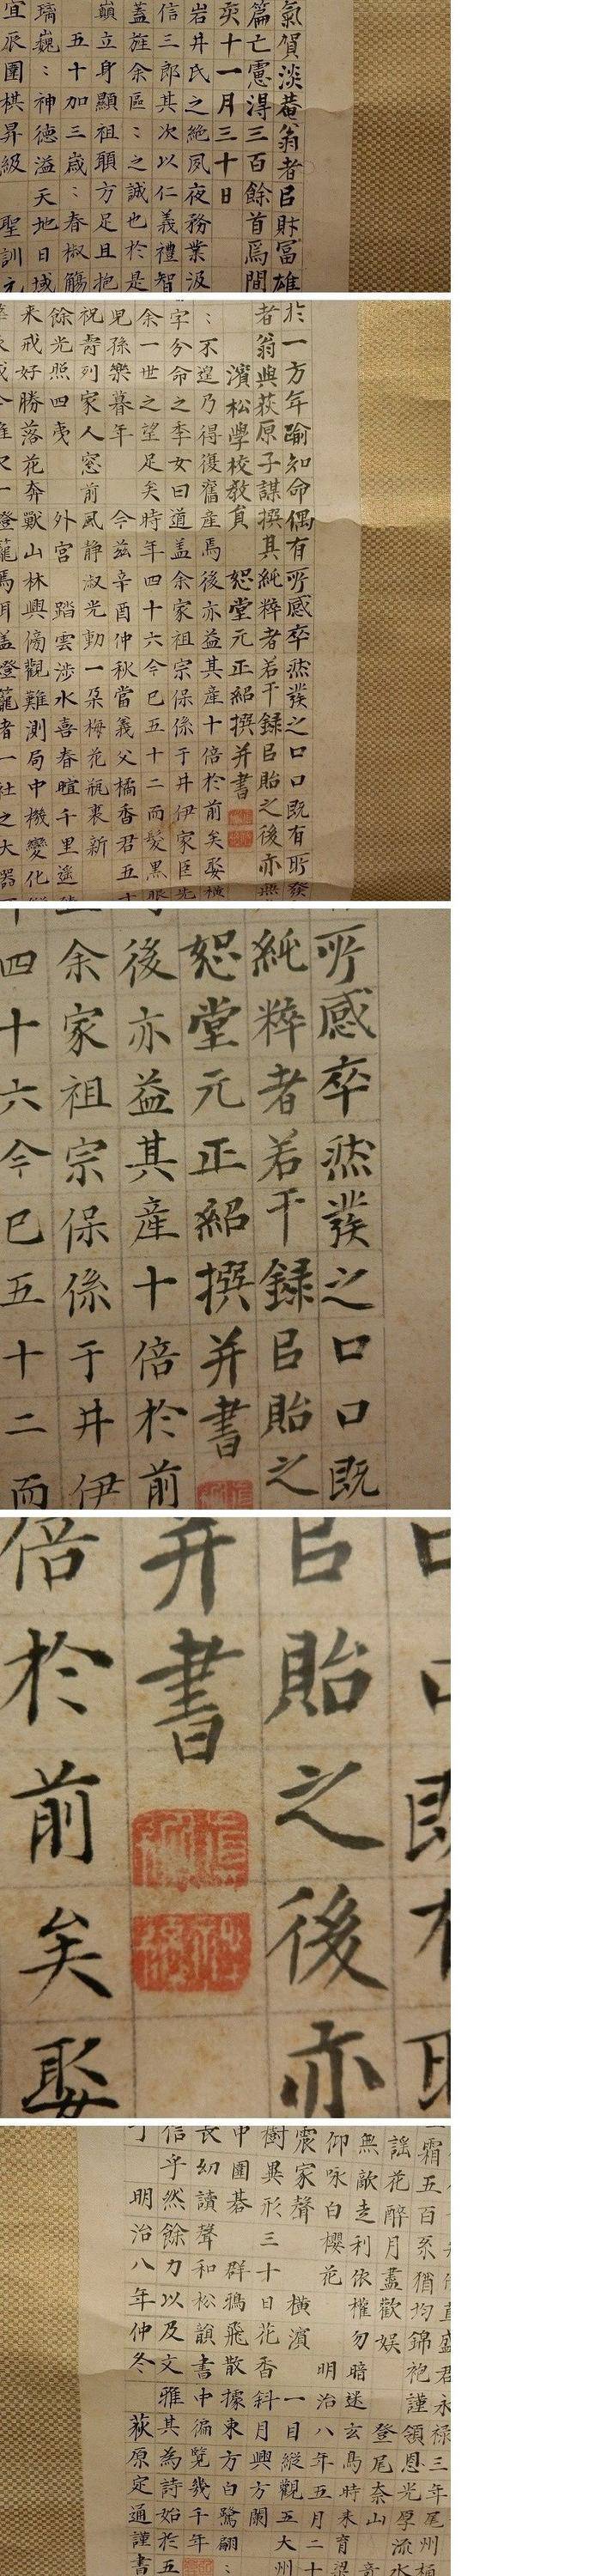 氣賀淡菴翁者㠯財冨雄
篇亡慮得三百餘首焉間
亥十一月三十日
岩井氏之絶夙夜務業汲
信三郎其次以仁義禮智
蓋旌余區：之誠也於是
巓立身顯祖頤方足且抱
五十加三歳：春椒觴
璃巍：神德溢天地日域
宜辰圍棋昇級　聖訓元
於一方年踰知命偶有所感卒然發之口口既有所發
者翁與荻原子謀撰其純粹者若干録㠯貽之後亦
濱松學校教負　恕堂元正紹撰并書
：不遑乃得復舊産焉後亦益其産十倍於前矣娶横
字分命之季女曰道盖余家祖宗保係于井伊家臣先
余一世之望足矣時年四十六今已五十二而髮黒眼
児孫樂暮年　今茲辛酉仲秋當義父橘香君五十
祝壽列家人窓前風静淑光動一朶梅花瓶裏新
餘光照四夷　外宮　踏雲涉水喜春暄千里遥
来戒好勝落花奔獸山林興傍觀難測局中機變化
所感卒然發之口口既
純粹者若干録㠯貽之
恕堂元正紹撰并書
後亦益其産十倍於前
余家祖宗保係于井伊
四十六今已五十二而
㠯貽之後亦
并書
倍於前矣娶
霜五百系猶均錦袍謹領恩光厚流水
謠花醉月盡歡娯　登尾奈山
無歃走利依權勿暗迷玄鳥時来育梁
仰咏白櫻花　明治八年五月二十
震家聲　横濱　一目縱觀五大州
樹異形三十日花香斜月興方闌
中圍碁　群鴉飛散據東方白鷺翩：
長幼讀聲和松韻書中徧覽幾千年
信乎然餘力以及文雅其為詩始於五
明治八年仲冬　荻原定通謹書